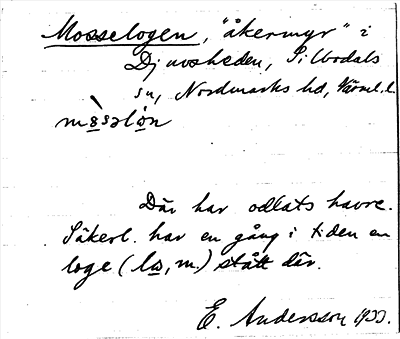 Mosselogen, "åkermyr" i
Djuvsheden, Silbodals
sn, Nordmarks hd, Värml. l.
Där har odlats havre.
Säkerl. har en gång i tiden en
loge (lo, m.) stått där.
E. Andersson 1933.